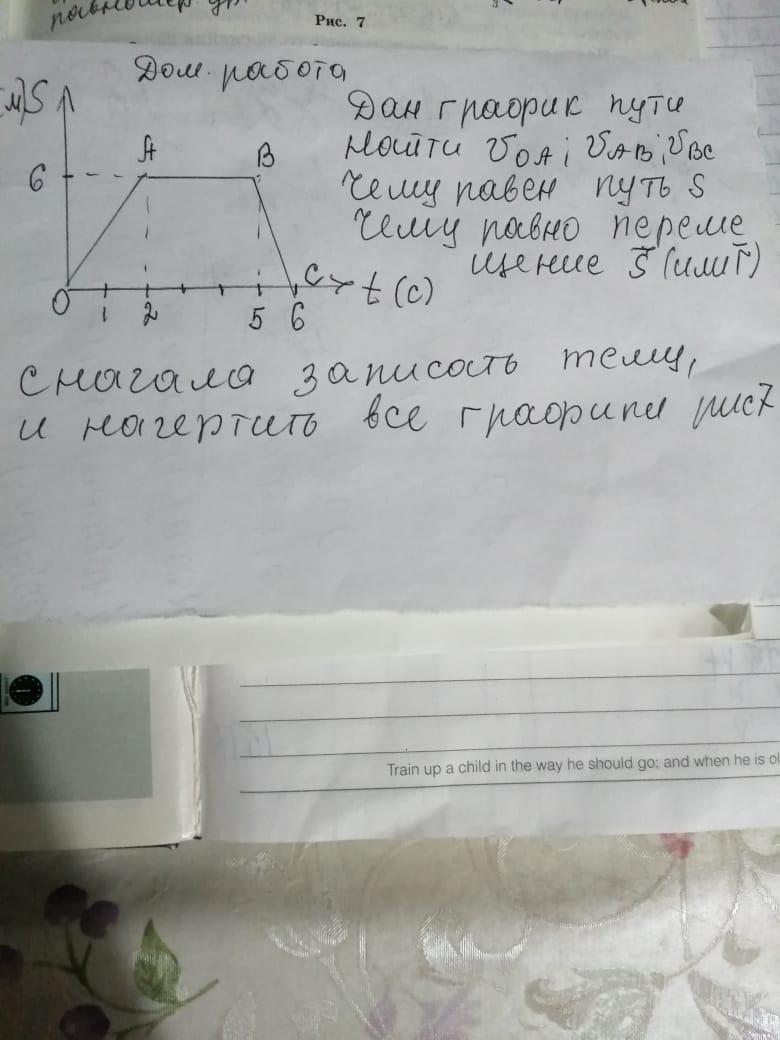 Рис. 7
Дом. работа
(м) S
Дан график пути
Найти υOA; υAB; υBC
Чему равен путь S
Чему равно переме
щение S⃗ (или r⃗)
A
B
6
O
1
2
5
6
C
t (c)
сначала записать тему,
и начертить все графики рис7
Train up a child in the way he should go; and when he is ol